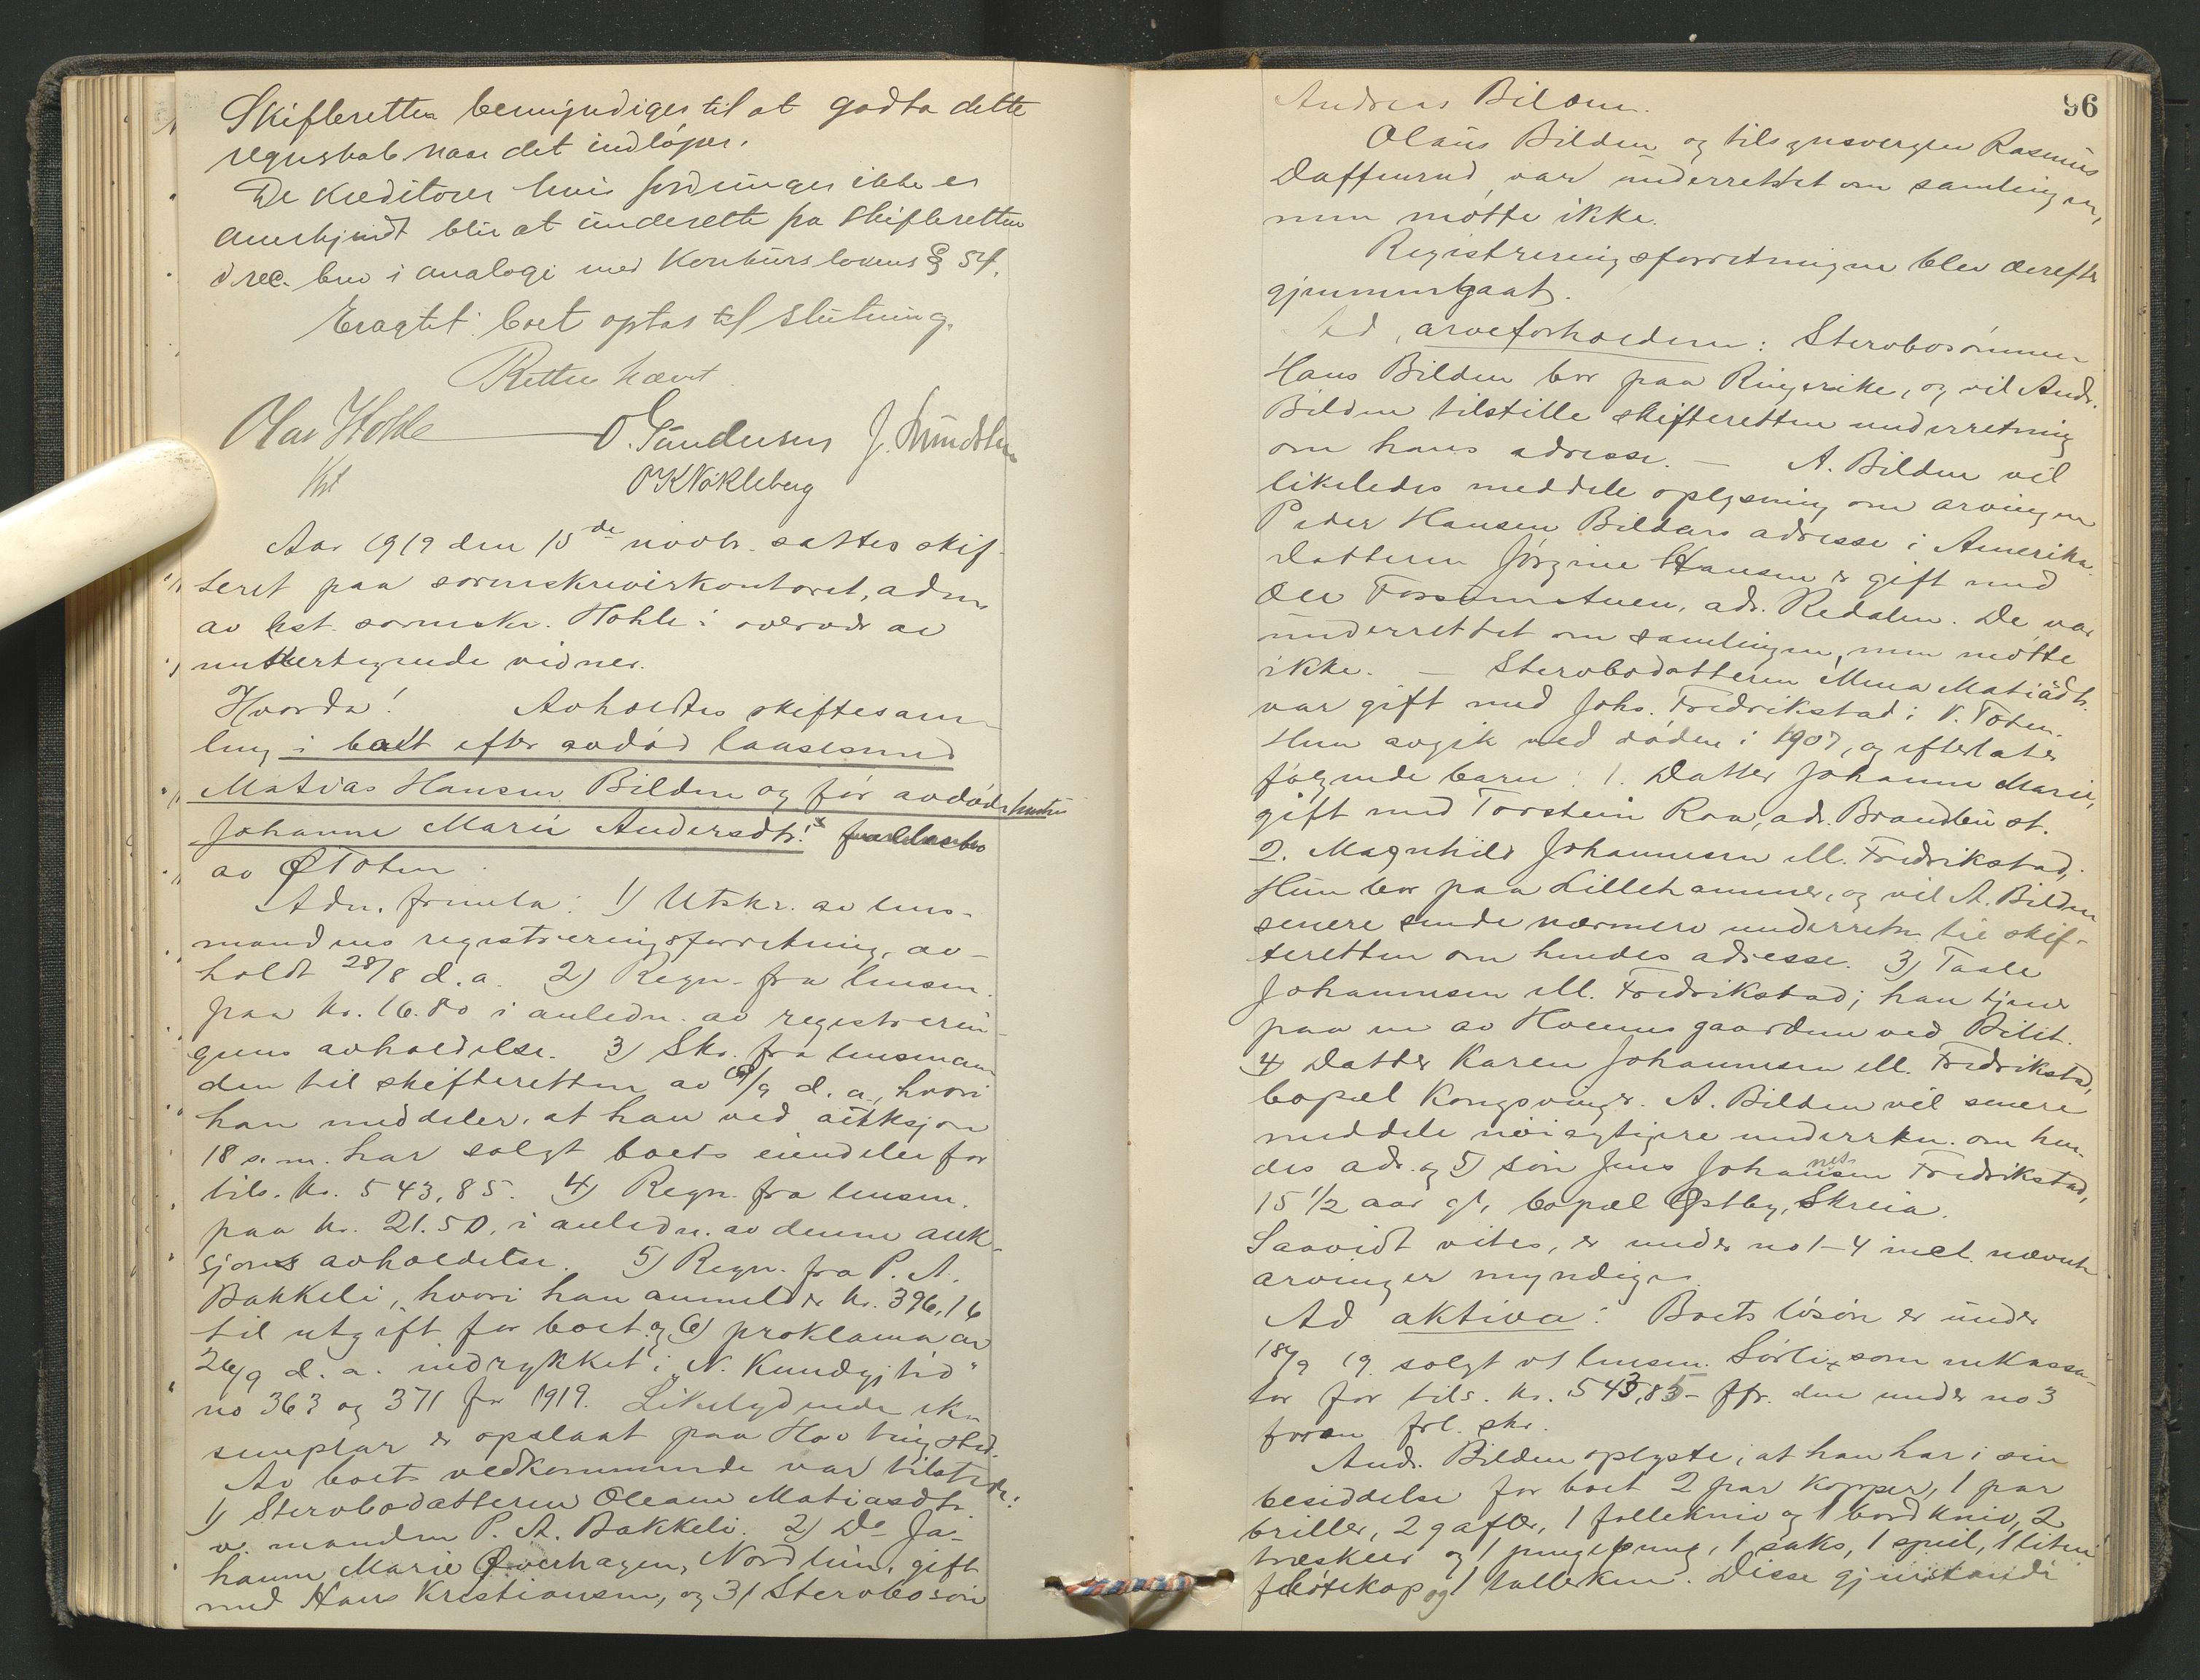 Skifteretten bemyndiges til at godta dette
regnskab naar det indløper.
De kreditorer hvis fordringer ikke er
anerkjendt blir at underrette fra skifteretten
i rec. brev i analogi med Konkurslovens § 54.
Eragtet: boet optas til slutning.
Retten hævet.
Olav Hohle O. Gundersen J. Lundsten
Kst O K Nøkleberg
Aar 1919 den 15de novbr. sattes skif-
teret paa sorenskriverkontoret, adm.
av kst. sorenskr. Hohle i overvær av
undertegnede vidner.
Hvorda! Avholdtes skiftesam-
ling i boet efter avdød laasesmed
Matias Hansen Bilden og før avdøde hustru
Johanne Marie Andersdtr.
av ØToten.
Adm. fremla: 1) Utskr. av lens-
mandens registreringsforretning, av-
holdt 28/8 d.a. 2) Regn. fra lensm.
paa kr. 16.80 i anledn. av registrerin-
gens avholdelse. 3) Skr. fra lensman-
den til skifteretten av /9 d.a., hvori
han meddeler, at han ved auksjon
18 s.m. har solgt boets eiendeler for
tils. kr. 543,85. 4) Regn. fra lensm.
paa kr. 21.50, i anledn. av denne auk-
sjons avholdelse. 5) Regn. fra P. A.
Bakkeli, hvori han anmelder kr. 396,16
til utgift for boet og 6) proklama av
26/9 d.a. indrykket i "N. Kundgj.tid"
no 363 og 371 for 1919. Likelydende eks-
emplar er opslaat paa Hov tingsted.
Av boets vedkommende var tilstede:
1) Stervbodatteren Oleane Matiasdtr.
v. manden P. A. Bakkeli. 2) Do Jo-
hanne Marie Øverhagen, Nordlien, gift
med Hans Kristiansen, og 3) Stervbosøn
96
Andreas Bilden.
Olaus Bilden og tilsynsvergen Rasmus
Daffinrud var underrettet om samlingen,
men møtte ikke.
Registreringsforretningen blev derefter
gjennemgaat.
Ad arveforholdene: Stervbosønnen
Hans Bilden bor paa Ringerike, og vil Andr.
Bilden tilstille skifteretten underretning
om hans adresse. — A. Bilden vil
likeledes meddele oplysning om arvingen
Peder Hansen Bildens adresse i Amerika.
Datteren Jørgine Hansen er gift med
Ole Fossumstuen, adr. Redalen. De var
underrettet om samlingen, men møtte
ikke. — Stervbodatteren Mina Matiasdtr.
var gift med Johs. Fredrikstad i V. Toten.
Hun avgik ved døden i 1907, og efterlater
følgende barn: 1. Datter Johanne Marie,
gift med Torstein Roa, adr. Brandbu st.
2. Magnhild Johannesen ell. Fredrikstad,
Hun bor paa Lillehammer, og vil A. Bilden
senere sende nærmere underretn. til skif-
teretten om hendes adresse. 3) Taale
Johannesen ell. Fredrikstad; han tjener
paa en av Hveemsgaardene ved Bilit.
4) Datter Karen Johannesen ell. Fredrikstad,
bopæl Kongsvinger. A. Bilden vil senere
meddele nøiagtigere underretn. om hen-
des adr. og 5) søn Jens Johannesen Fredrikstad,
15 1/2 aar gl., bopæl Østby, Skreia.
Saavidt vites, er under no 1-4 incl. nævnte
arvinger myndige.
Ad aktiva: Boets løsøre er under
18/9 19 solgt v/ lensm. Sørli, som inkassa-
tor for tils. kr. 543,85 jfr. den under no 3
foran frl. skr.
Andr. Bilden oplyste, at han har i sin
besiddelse for boet 2 par kopper, 1 par
briller, 2 gafler, 1 follekniv og 1 bordkniv, 2
træskeer og 1 pengepung, 1 saks, 1 speil, 1 liten
fløtekop og 1 tallerken. Disse gjenstande